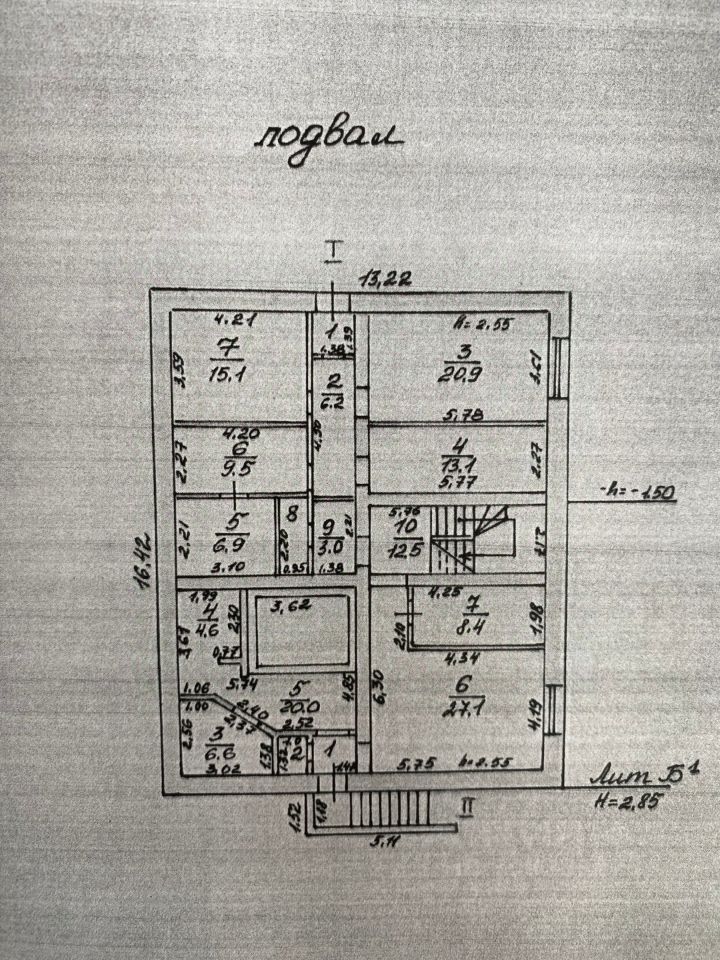 подвал
I
13,22
4.21
7
15.1
3,59
1
1.38
1.39
h=2.55
3
20.9
3.61
5.78
2
6.2
4.50
4.20
6
9.5
2.27
4
13.1
5.77
2.27
-h=-1.50
5
6.9
2.21
3.10
8
2.20
0.95
9
3.0
2.21
1.38
5.76
10
12.5
2.17
16,42
1,99
4
4.6
2,30
3,67
0.77
3,62
4.25
7
8.4
2.10
1,98
4.34
1.06
1.06
5.74
5
20.0
4.85
6,30
6
27.1
4.19
2.40
2.37
2.52
2.56
3
6.6
3.02
1.38
1.32
2
1
1.42
5.75
h=2.55
Лит Б¹
H=2,85
1.52
1,18
II
5.11